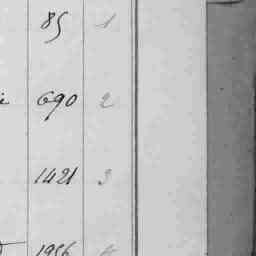 85 1
690 2
1421 3
1956